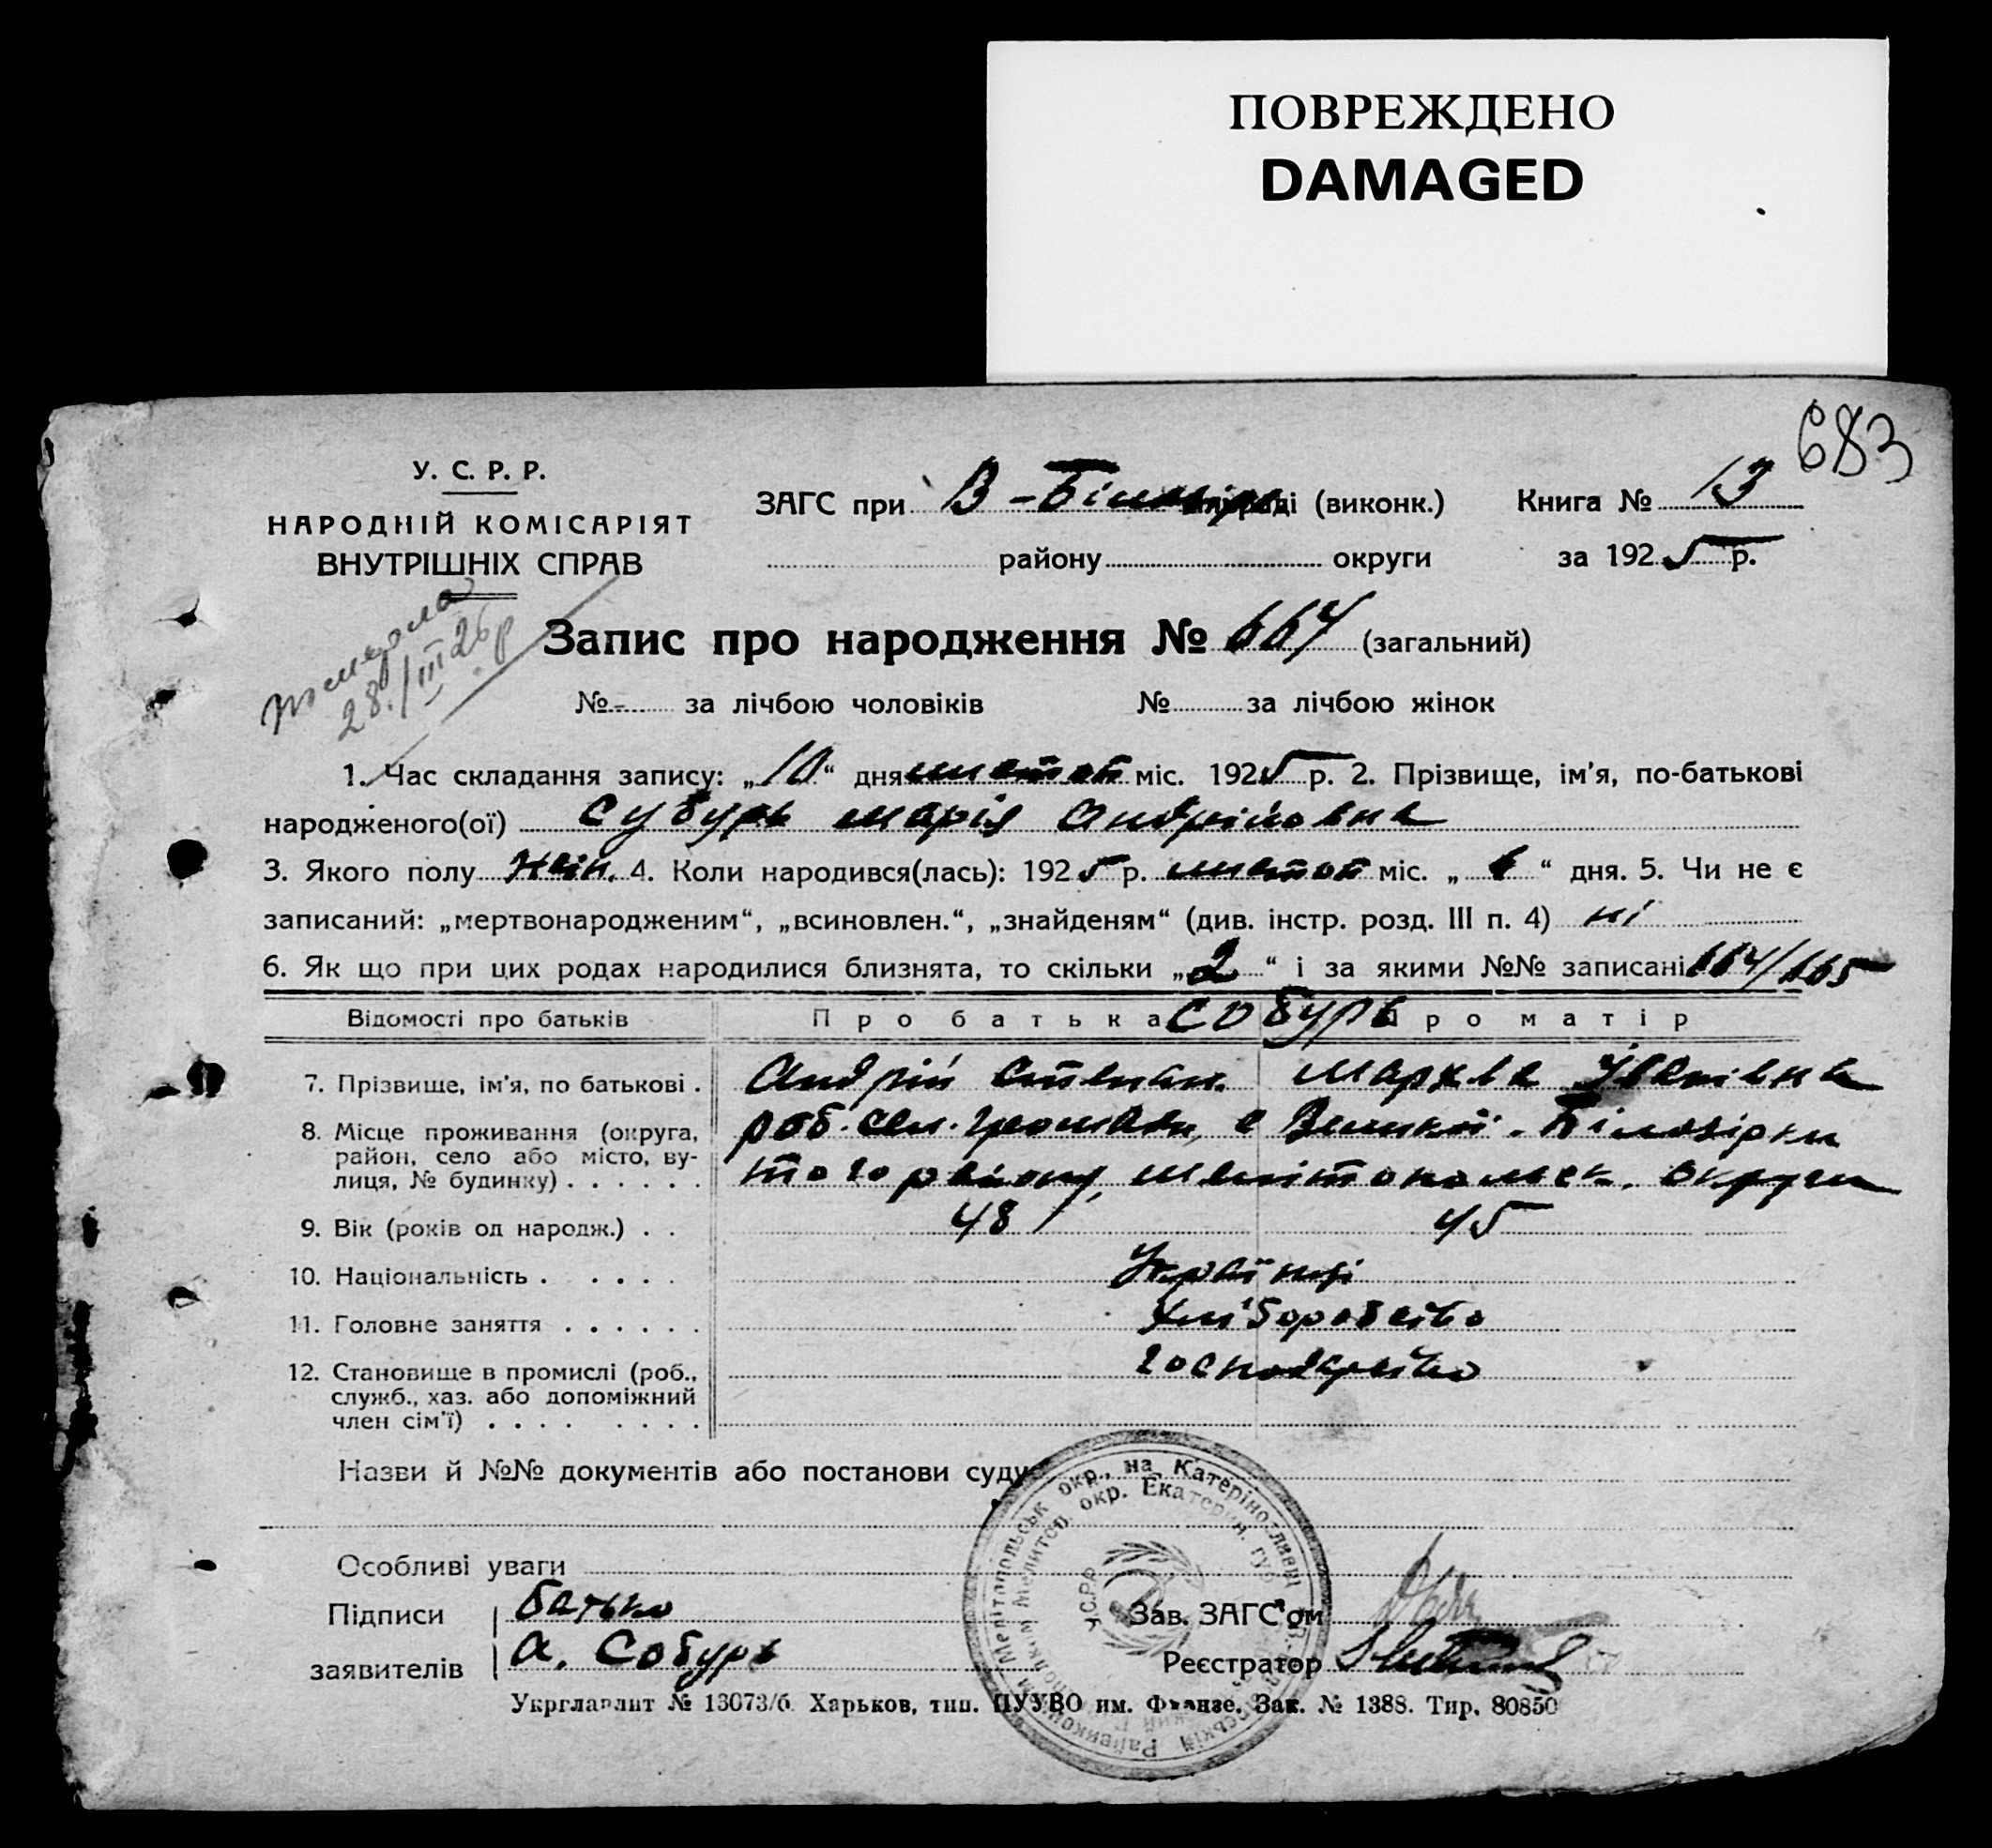 ПОВРЕЖДЕНО
DAMAGED
683
У. С. Р. Р.
НАРОДНІЙ КОМІСАРІЯТ
ВНУТРІШНІХ СПРАВ
ЗАГС при В-Білозірк. райраді (виконк.) Книга № 13
району округи за 1925 р.
померла
28/III 26 р
Запис про народження № 664 (загальний)
№ - за лічбою чоловіків № за лічбою жінок
1. Час складання запису: „10“ дня листоп міс. 1925 р. 2. Прізвище, ім'я, по-батькові
народженого(ої) Субурь Марія Андріївна
3. Якого полу жін. 4. Коли народився(лась): 1925 р. листоп міс. „ “ дня. 5. Чи не є
записаний: „мертвонародженим“, „всиновлен.“, „знайденям“ (див. інстр. розд. III п. 4) ні
6. Як що при цих родах народилися близнята, то скільки „2“ і за якими №№ записані 664/665
Відомості про батьків Про батька Про матір
Собурь
7. Прізвище, ім'я, по батькові . Андрій Степан. Мархва Іванівна
8. Місце проживання (округа, район, село або місто, вулиця, № будинку) . . . . . . роб. сел. громади, с Великої-Білозірки
того району, Мелітопольск. округи
9. Вік (років од народж.) . . 48 45
10. Національність . . . . . Українці
11. Головне заняття . . . . . . Хліборобство
12. Становище в промислі (роб., служб., хаз. або допоміжний член сім'ї) . . . . . . . . господарство
Назви й №№ документів або постанови суду
Особливі уваги
Підписи батько Зав. ЗАГС'ом
заявителів А. Собурь Реєстратор
Укрглавлит № 13073/б Харьков, тип. ПУУВО им. Фрунзе. Зак. № 1388. Тир. 80850